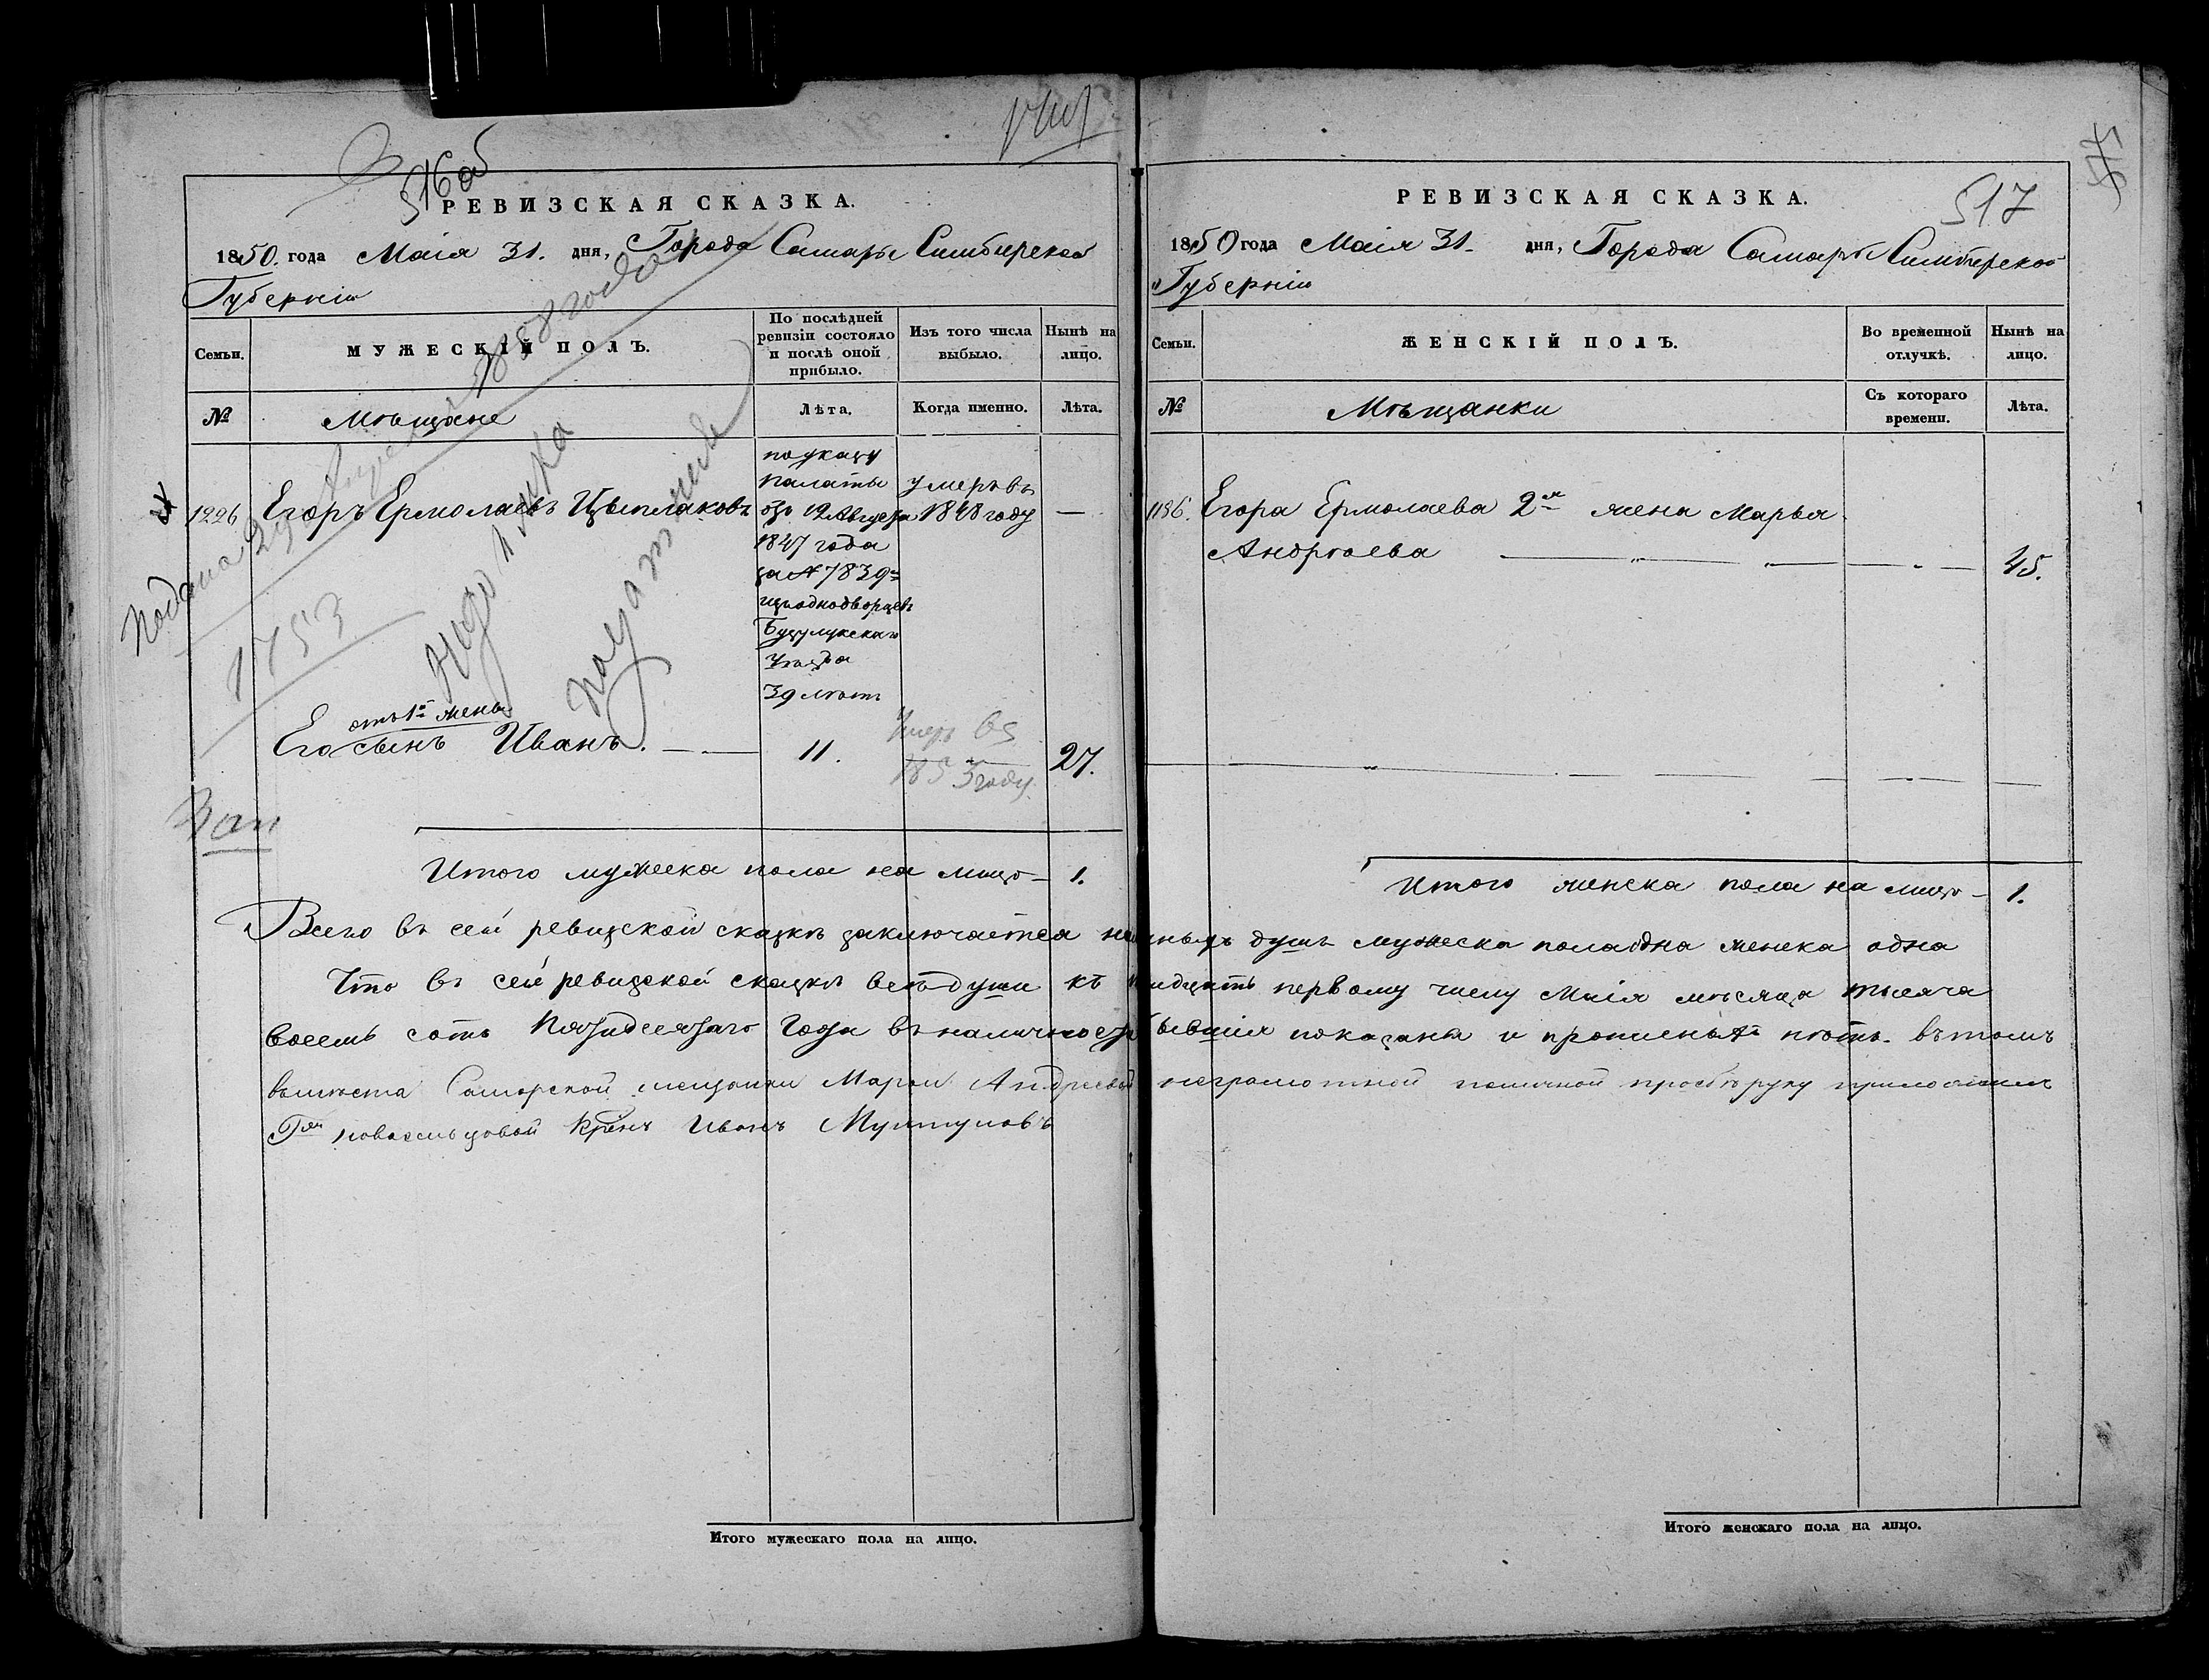 516 об
РЕВИЗСКАЯ СКАЗКА.
1850. года Маія 31. дня, Города Самары Симбирской
Губерніи
Семьи.
МУЖЕСКІЙ ПОЛЪ.
По послѣдней ревизіи состояло и послѣ оной прибыло.
Изъ того числа выбыло.
Нынѣ на лицо.
№
Мѣщане
Лѣта.
Когда именно.
Лѣта.
1226
Егоръ Ермолаевъ Цыплаковъ
по указу
палаты
отъ 12 Августа
1847 года
за № 7839м
изъ однодворцевъ
Бузулукскаго
уѣзда
39 лѣтъ
умеръ въ
1848 году
—
отъ 1й жены
Его сынъ Иванъ.
11.
Умеръ въ
1853 году
27.
Подана 29 1858 года
1753
Зап
Итого мужеска пола на лицо — 1.
517
РЕВИЗСКАЯ СКАЗКА.
1850 года Маія 31. дня, Города Самары Симбирской
Губерніи
Семьи.
ЖЕНСКІЙ ПОЛЪ.
Во временной отлучкѣ.
Нынѣ на лицо.
№
Мѣщанки
Съ котораго времени.
Лѣта.
1196.
Егора Ермолаева 2я жена Марья
Андрѣева
45.
Итого женска пола на лицо — 1.
Всего въ сей ревизской сказкѣ заключается наличныхъ душъ мужеска пола одна женска одна
Что въ сей ревизской сказкѣ всѣ души къ тридцать первому числу Маія мѣсяца тысяча
восемь сотъ пятидесятаго года въ наличности бывшія показаны и прописныхъ нѣтъ. въ томъ
вмѣсто Самарской мещанки Марьи Андреевой неграмотной по личной прозьбѣ руку приложилъ
Гжи Новосильцовой Крѣнъ Иванъ
Итого мужескаго пола на лицо.
Итого женскаго пола на лицо.